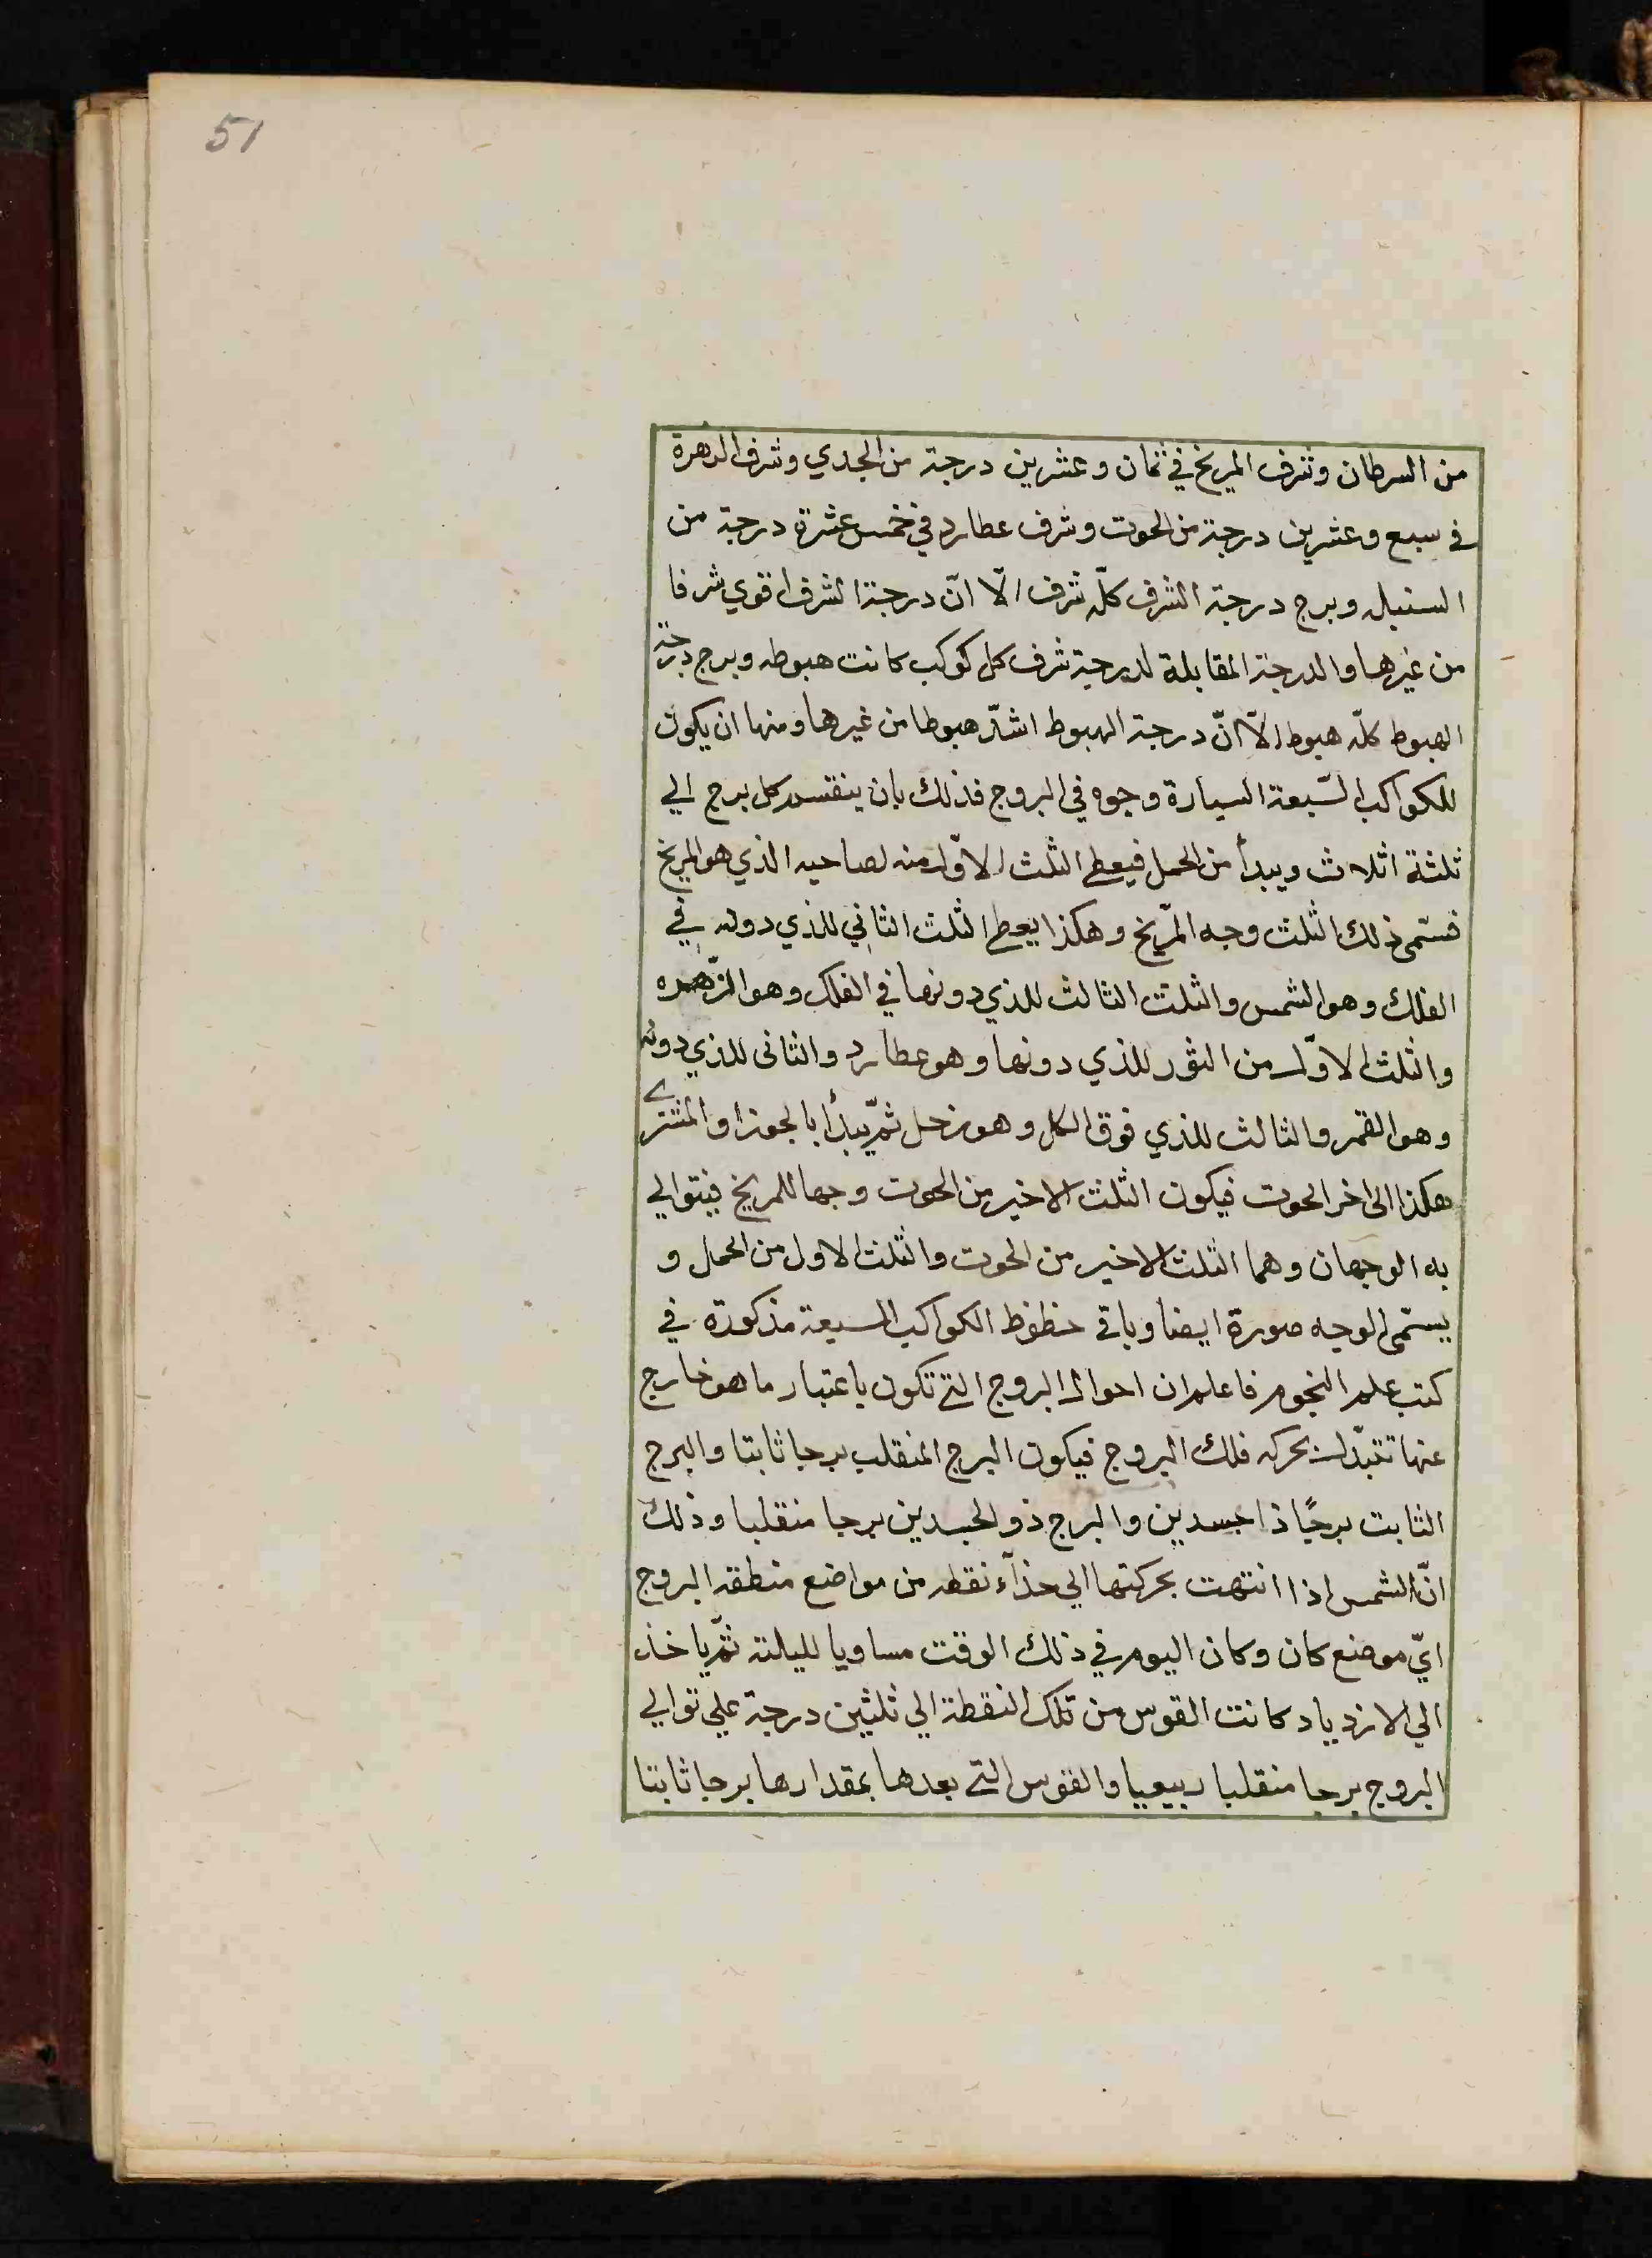 51
من السرطان وشرف المريخ في ثمان وعشرين درجة من الجدي وشرف الزهرة
في سبع وعشرين درجة من الحوت وشرف عطارد في خمس عشرة درجة من
السنبله وبرج درجة الشرف كلّه شرف الّا انّ درجة الشرف اقوي شرفا
من غيرها والدرجة المقابلة لدرجة شرف كل كوكب كانت هبوطه وبرج درجة
الهبوط كلّه هبوط الّا انّ درجة الهبوط اشدّ هبوطا من غيرها ومنها ان يكون
للكواكب السّبعة السيارة وجوه في البروج فذلك بان ينقسم كل برج الي
ثلثة اثلاث ويبدأ من الحمل فيعطي الثلث الاوّل منه لصاحبه الذي هو المريخ
فسّمي ذلك الثلث وجه المرّيخ وهكذا يعطي الثلث الثاني للذي دونه في
الفلك وهو الشمس والثلث الثالث للذي دونها في الفلك وهو الزّهره
والثلث الاوّل من الثور للذي دونها وهو عطارد والثانى للذي دونه
وهو القمر والثالث للذي فوق الكل وهو زحل ثمّ يبدأ بالجوزا والمشتري
هكذا الى اخر الحوت فيكون الثلث الاخير من الحوت وجها للمريخ فيتوالي
به الوجهان وهما الثلث الاخير من الحوت والثلث الاول من الحمل و
يسّمى الوجه صورة ايضا وباقي حظوظ الكواكب السبعة مذكورة في
كتب علم النجوم فاعلم ان احوال البروج التي تكون باعتبار ما هو خارج
عنها تتبدّل بحركه فلك البروج فيكون البرج المنقلب برجا ثابتا والبرج
الثابت برجًا ذا جسدين والبرج ذو الجسدين برجا منقلبا وذلك
انّ الشمس اذا انتهت بحركتها الي حذآء نقطه من مواضع منطقه البروج
ايّ موضع كان وكان اليوم في ذلك الوقت مساويا لليلته ثمّ ياخذ
الي الازدياد كانت القوس من تلك النقطة الي ثلثين درجة علي توالي
البروج برجا منقلبا ربيعيا والقوس التي بعدها بمقدارها برجا ثابتا